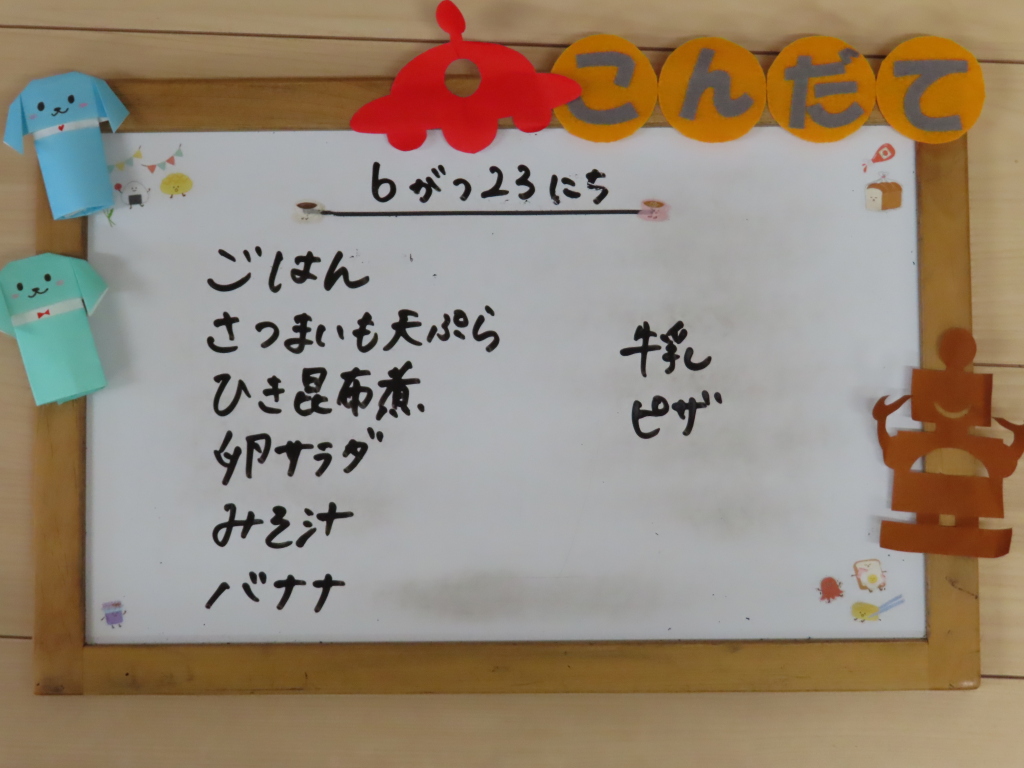 こんだて
6がつ23にち
ごはん
さつまいも天ぷら
ひき昆布煮
卵サラダ
みそ汁
バナナ
牛乳
ピザ